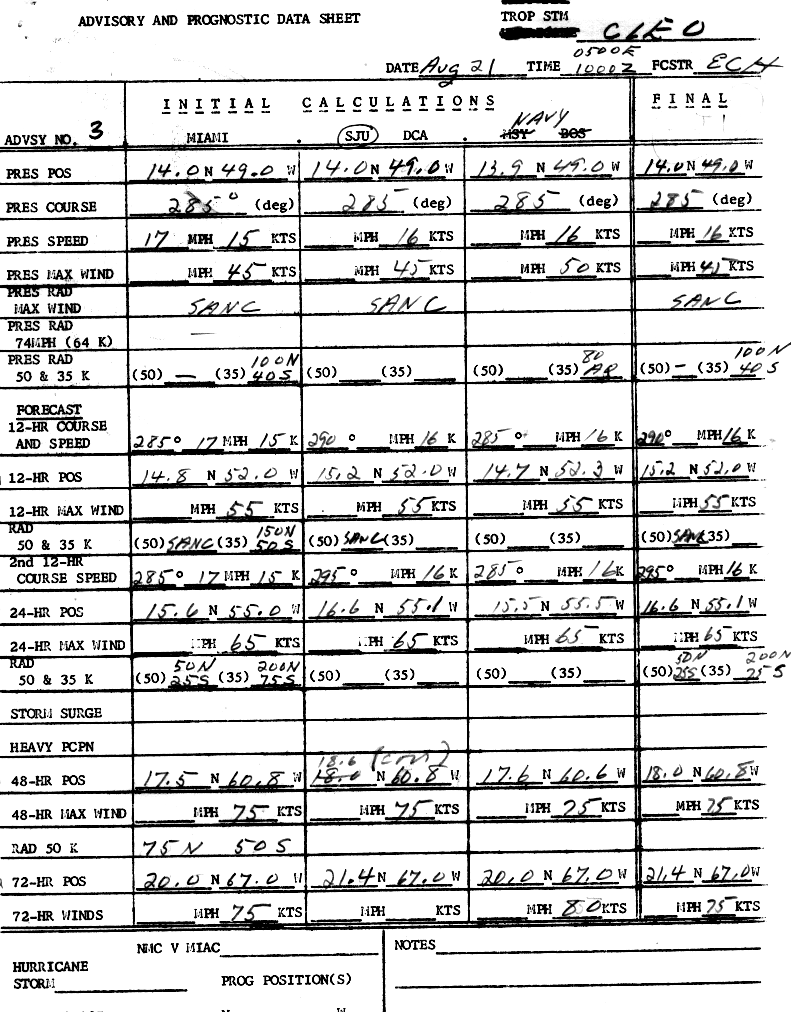 ADVISORY AND PROGNOSTIC DATA SHEET TROP STM CLEO
DATE Aug 21 TIME 0500E 1000Z FCSTR ECH
INITIAL CALCULATIONS FINAL
NAVY
ADVSY NO. 3 MIAMI . SJU DCA . MSY BOS
PRES POS 14.0 N 49.0 W 14.0 N 49.0 W 13.9 N 49.0 W 14.0 N 49.0 W
PRES COURSE 285° (deg) 285 (deg) 285 (deg) 285 (deg)
PRES SPEED 17 MPH 15 KTS MPH 16 KTS MPH 16 KTS MPH 16 KTS
PRES MAX WIND MPH 45 KTS MPH 45 KTS MPH 50 KTS MPH 45 KTS
PRES RAD
MAX WIND SANC SANC SANC
PRES RAD
74MPH (64 K) —
PRES RAD 100N 80 100N
50 & 35 K (50) — (35) 40S (50) (35) (50) (35) (50) — (35) 40S
FORECAST
12-HR COURSE
AND SPEED 285° 17 MPH 15 K 290 ° MPH 16 K 285 ° MPH 16 K 290° MPH 16 K
12-HR POS 14.8 N 52.0 W 15.2 N 52.0 W 14.7 N 52.3 W 15.2 N 52.0 W
12-HR MAX WIND MPH 55 KTS MPH 55 KTS MPH 55 KTS MPH 55 KTS
RAD 150N
50 & 35 K (50) SANC (35) 50S (50) SANC (35) (50) (35) (50) SANC (35)
2nd 12-HR
COURSE SPEED 285° 17 MPH 15 K 295° MPH 16 K 285° MPH 16 K 295° MPH 16 K
24-HR POS 15.6 N 55.0 W 16.6 N 55.1 W 15.5 N 55.5 W 16.6 N 55.1 W
24-HR MAX WIND MPH 65 KTS MPH 65 KTS MPH 65 KTS MPH 65 KTS
RAD 50N 200N 50N 200N
50 & 35 K (50) 25S (35) 75S (50) (35) (50) (35) (50) 25S (35) 75S
STORM SURGE
HEAVY PCPN
18.6
48-HR POS 17.5 N 60.8 W 18.0 N 60.8 W 17.6 N 60.6 W 18.0 N 60.8 W
48-HR MAX WIND MPH 75 KTS MPH 75 KTS MPH 75 KTS MPH 75 KTS
RAD 50 K 75 N 50 S
72-HR POS 20.0 N 67.0 W 21.4 N 67.0 W 20.0 N 67.0 W 21.4 N 67.0 W
72-HR WINDS MPH 75 KTS MPH KTS MPH 80 KTS MPH 75 KTS
NMC V MIAC NOTES
HURRICANE
STORM PROG POSITION(S)